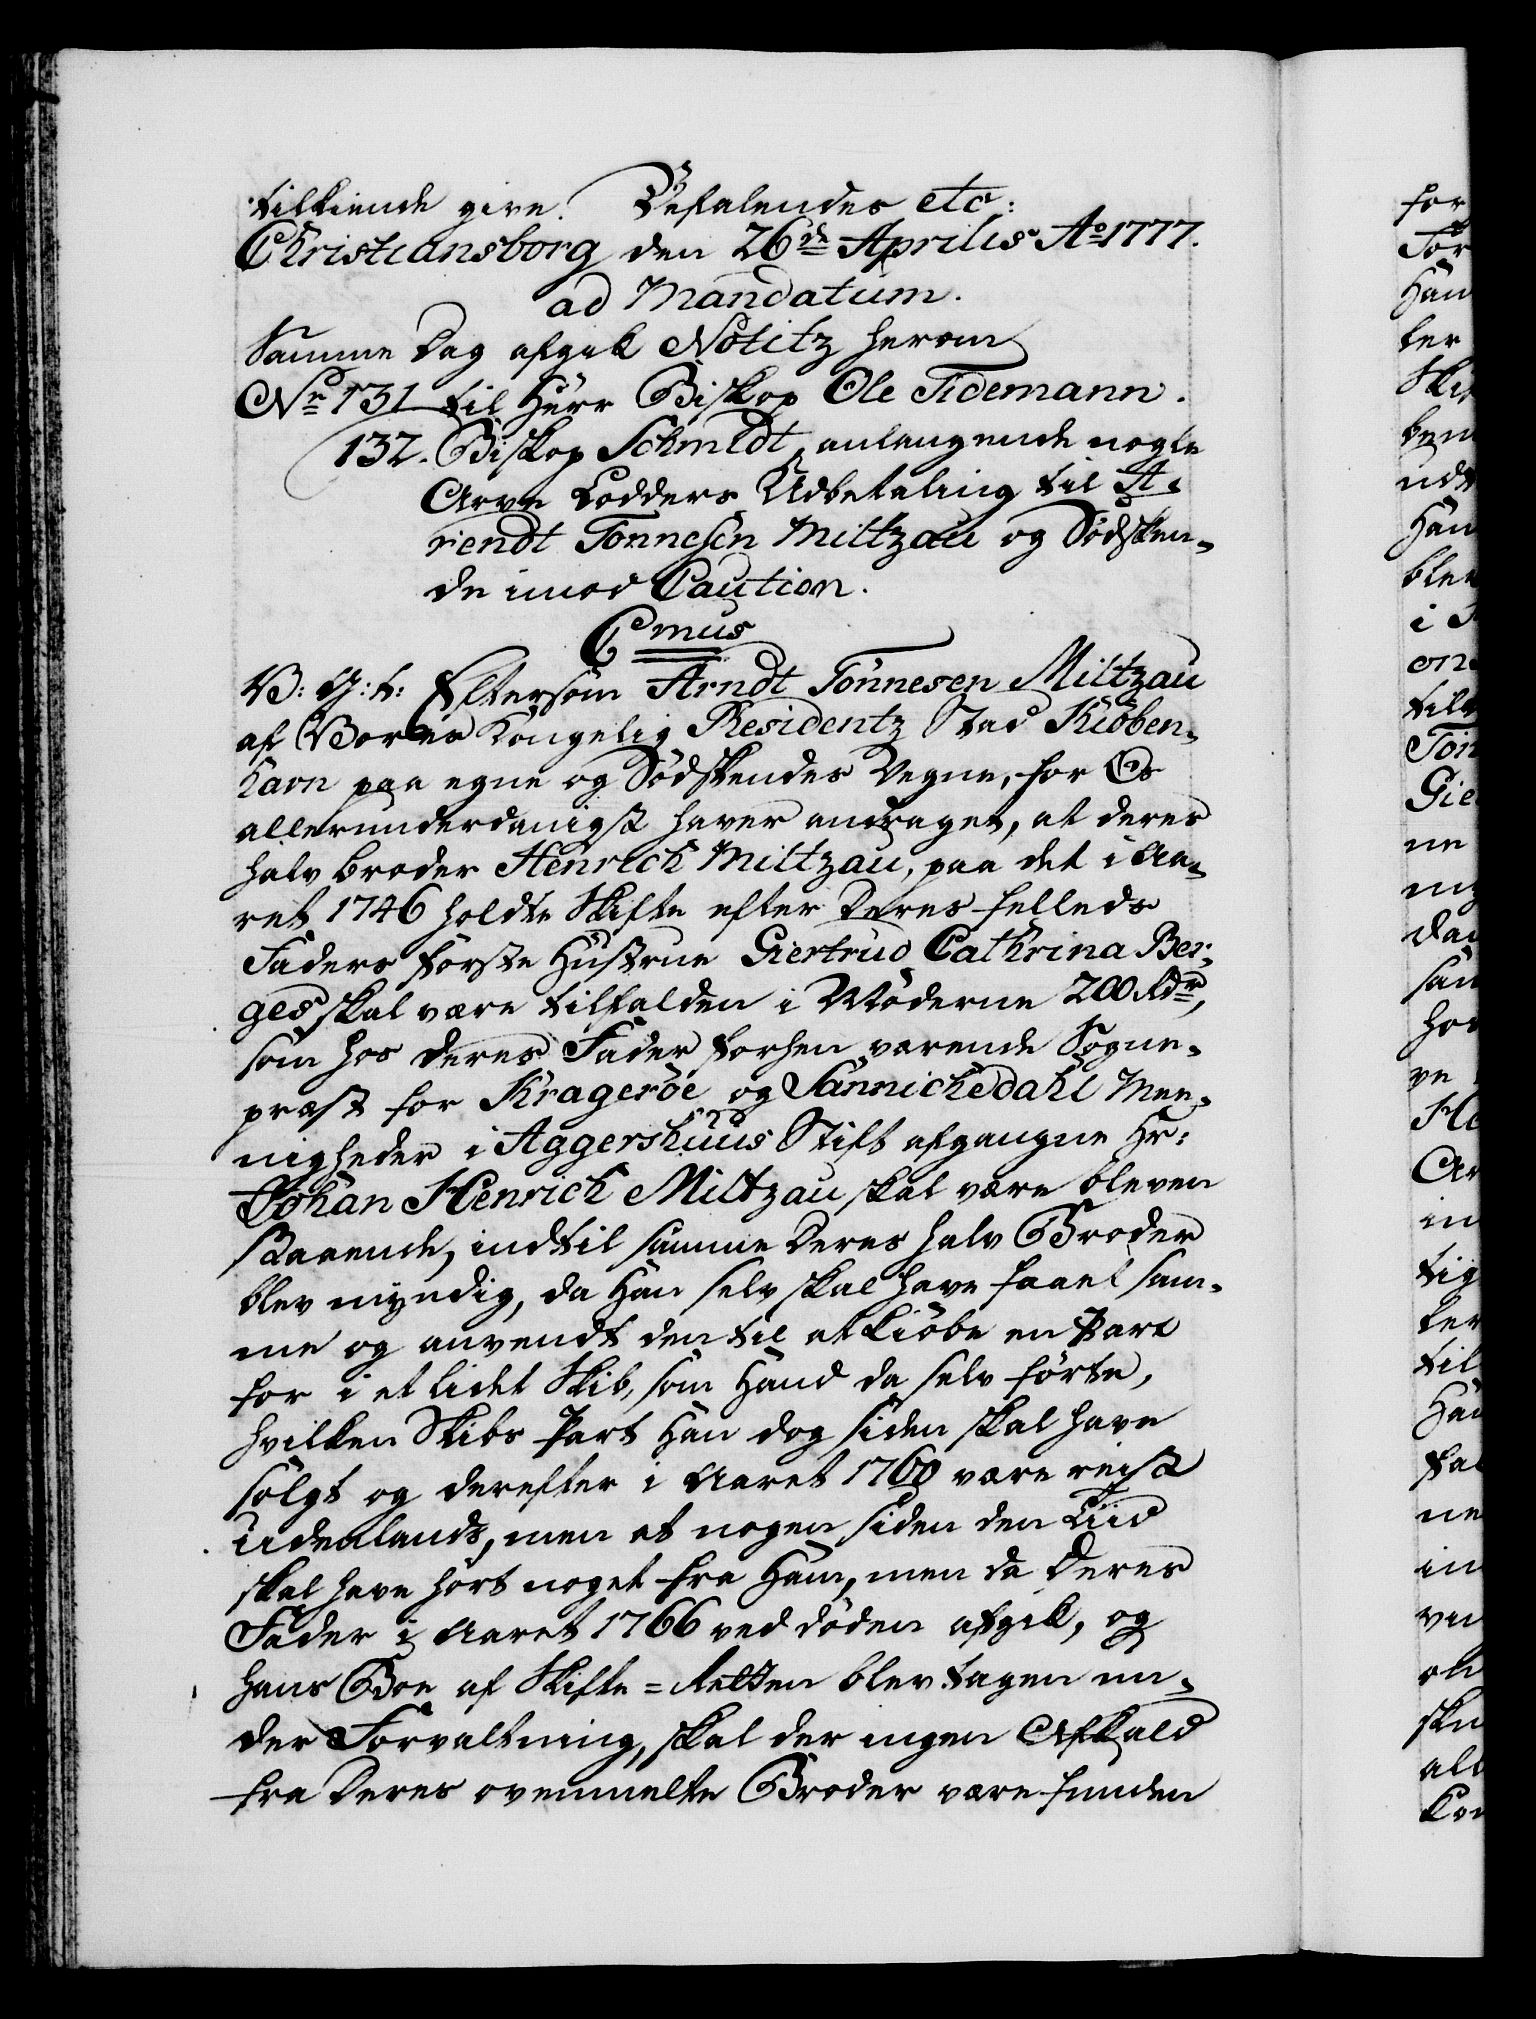 tilkiende give. Befalendes etc:
Christiansborg den 26de Aprilis Ao 1777.
ad Mandatum.
Samme Dag afgik Notitz herom
No 131 til Herr Biskop Ole Tidemann.
132. Biskop Schmidt, anlangende nogle
Arve Lodders Udbetaling til A-
riendt Tonnesen Miltzau og Södsken-
de imod Caution.
Cmus
V: G: t: Eftersom Arndt Tönnesen Miltzau
af Vores Kongelig Residentz Stad Kiöben-
havn paa egne og Södskendes Vegne, for Os
allerunderdanigst haver andraget, at deres
halv broder Henrich Miltzau, paa det i Aa-
ret 1746 holdte Skifte efter Deres felleds
Faders förste Hustrue Giertrud Cathrina Ber-
ges skal være tilfalden i Möderne 200 Rdr,
som hos deres Fader forhen værende Sogne-
præst for Krageröe og Sannichedahl Mee-
nigheder i Aggershuus Stift afgangne Hr:
Johan Henrich Miltzau skal være bleven
staaende, indtil samme Deres halv Broder
blev myndig, da Han selv skal have faaet sam-
me og anvendt den til at kiöbe en Part
for i et lidet Skib, som Hand da selv förte,
hvilken Skibs Part Han dog siden skal have
solgt og derefter i Aaret 1760 være reist
Udenlands, men at nogen siden den Tiid
skal have hört noget fra Ham, men da Deres
Fader i Aaret 1766 ved döden afgik, og
hans Boe af Skifte = Retten blev tagen un-
der Forvaltning, skal der ingen Afkald
fra Deres ovenmelte Broder være funden